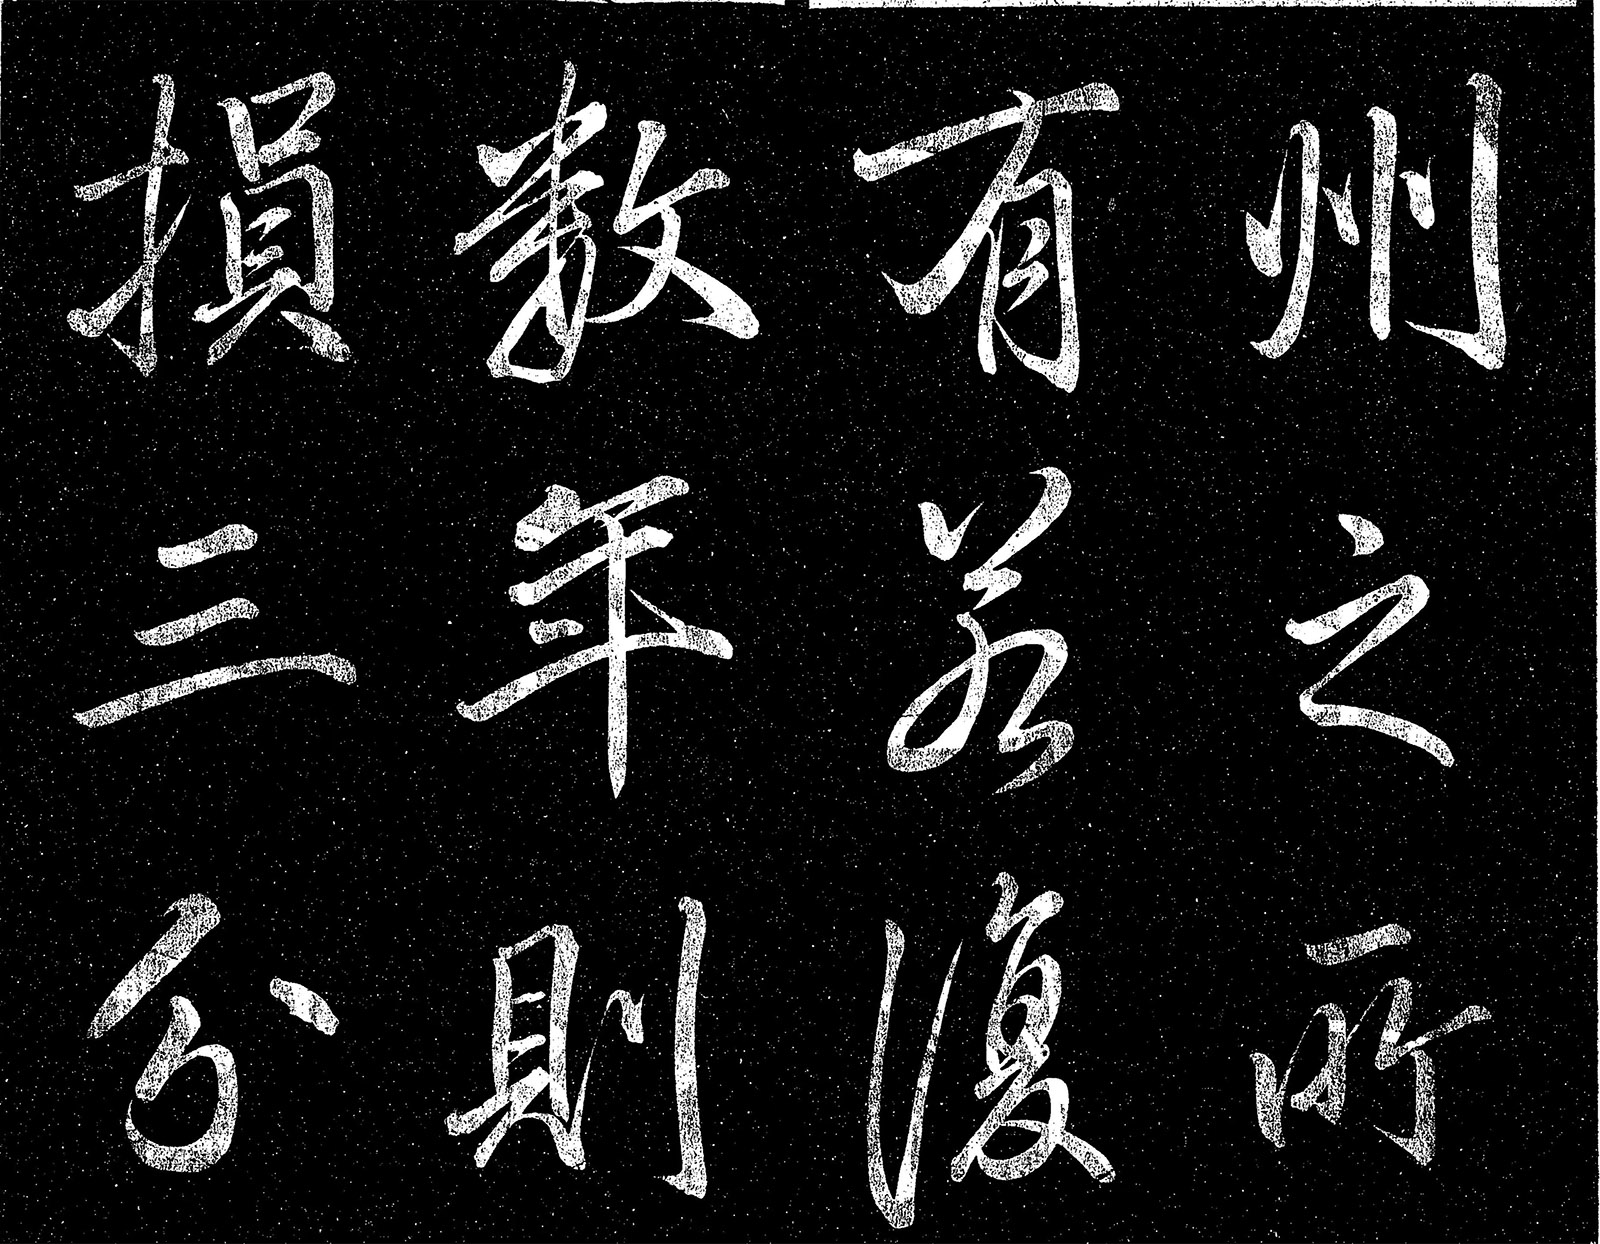 州之所
有若復
數年則
損三分